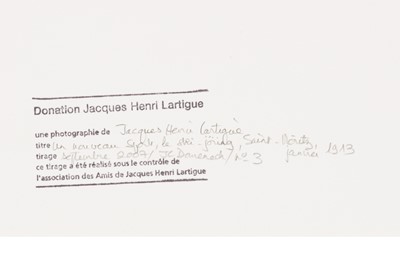 Donation Jacques Henri Lartigue
une photographie de Jacques Henri Lartigue
titre Un nouveau sport, le ski-jöring, Saint-Moritz, janvier 1913
tirage septembre 2007 / JC Domenech / n° 3
ce tirage a été réalisé sous le contrôle de
l'association des Amis de Jacques Henri Lartigue